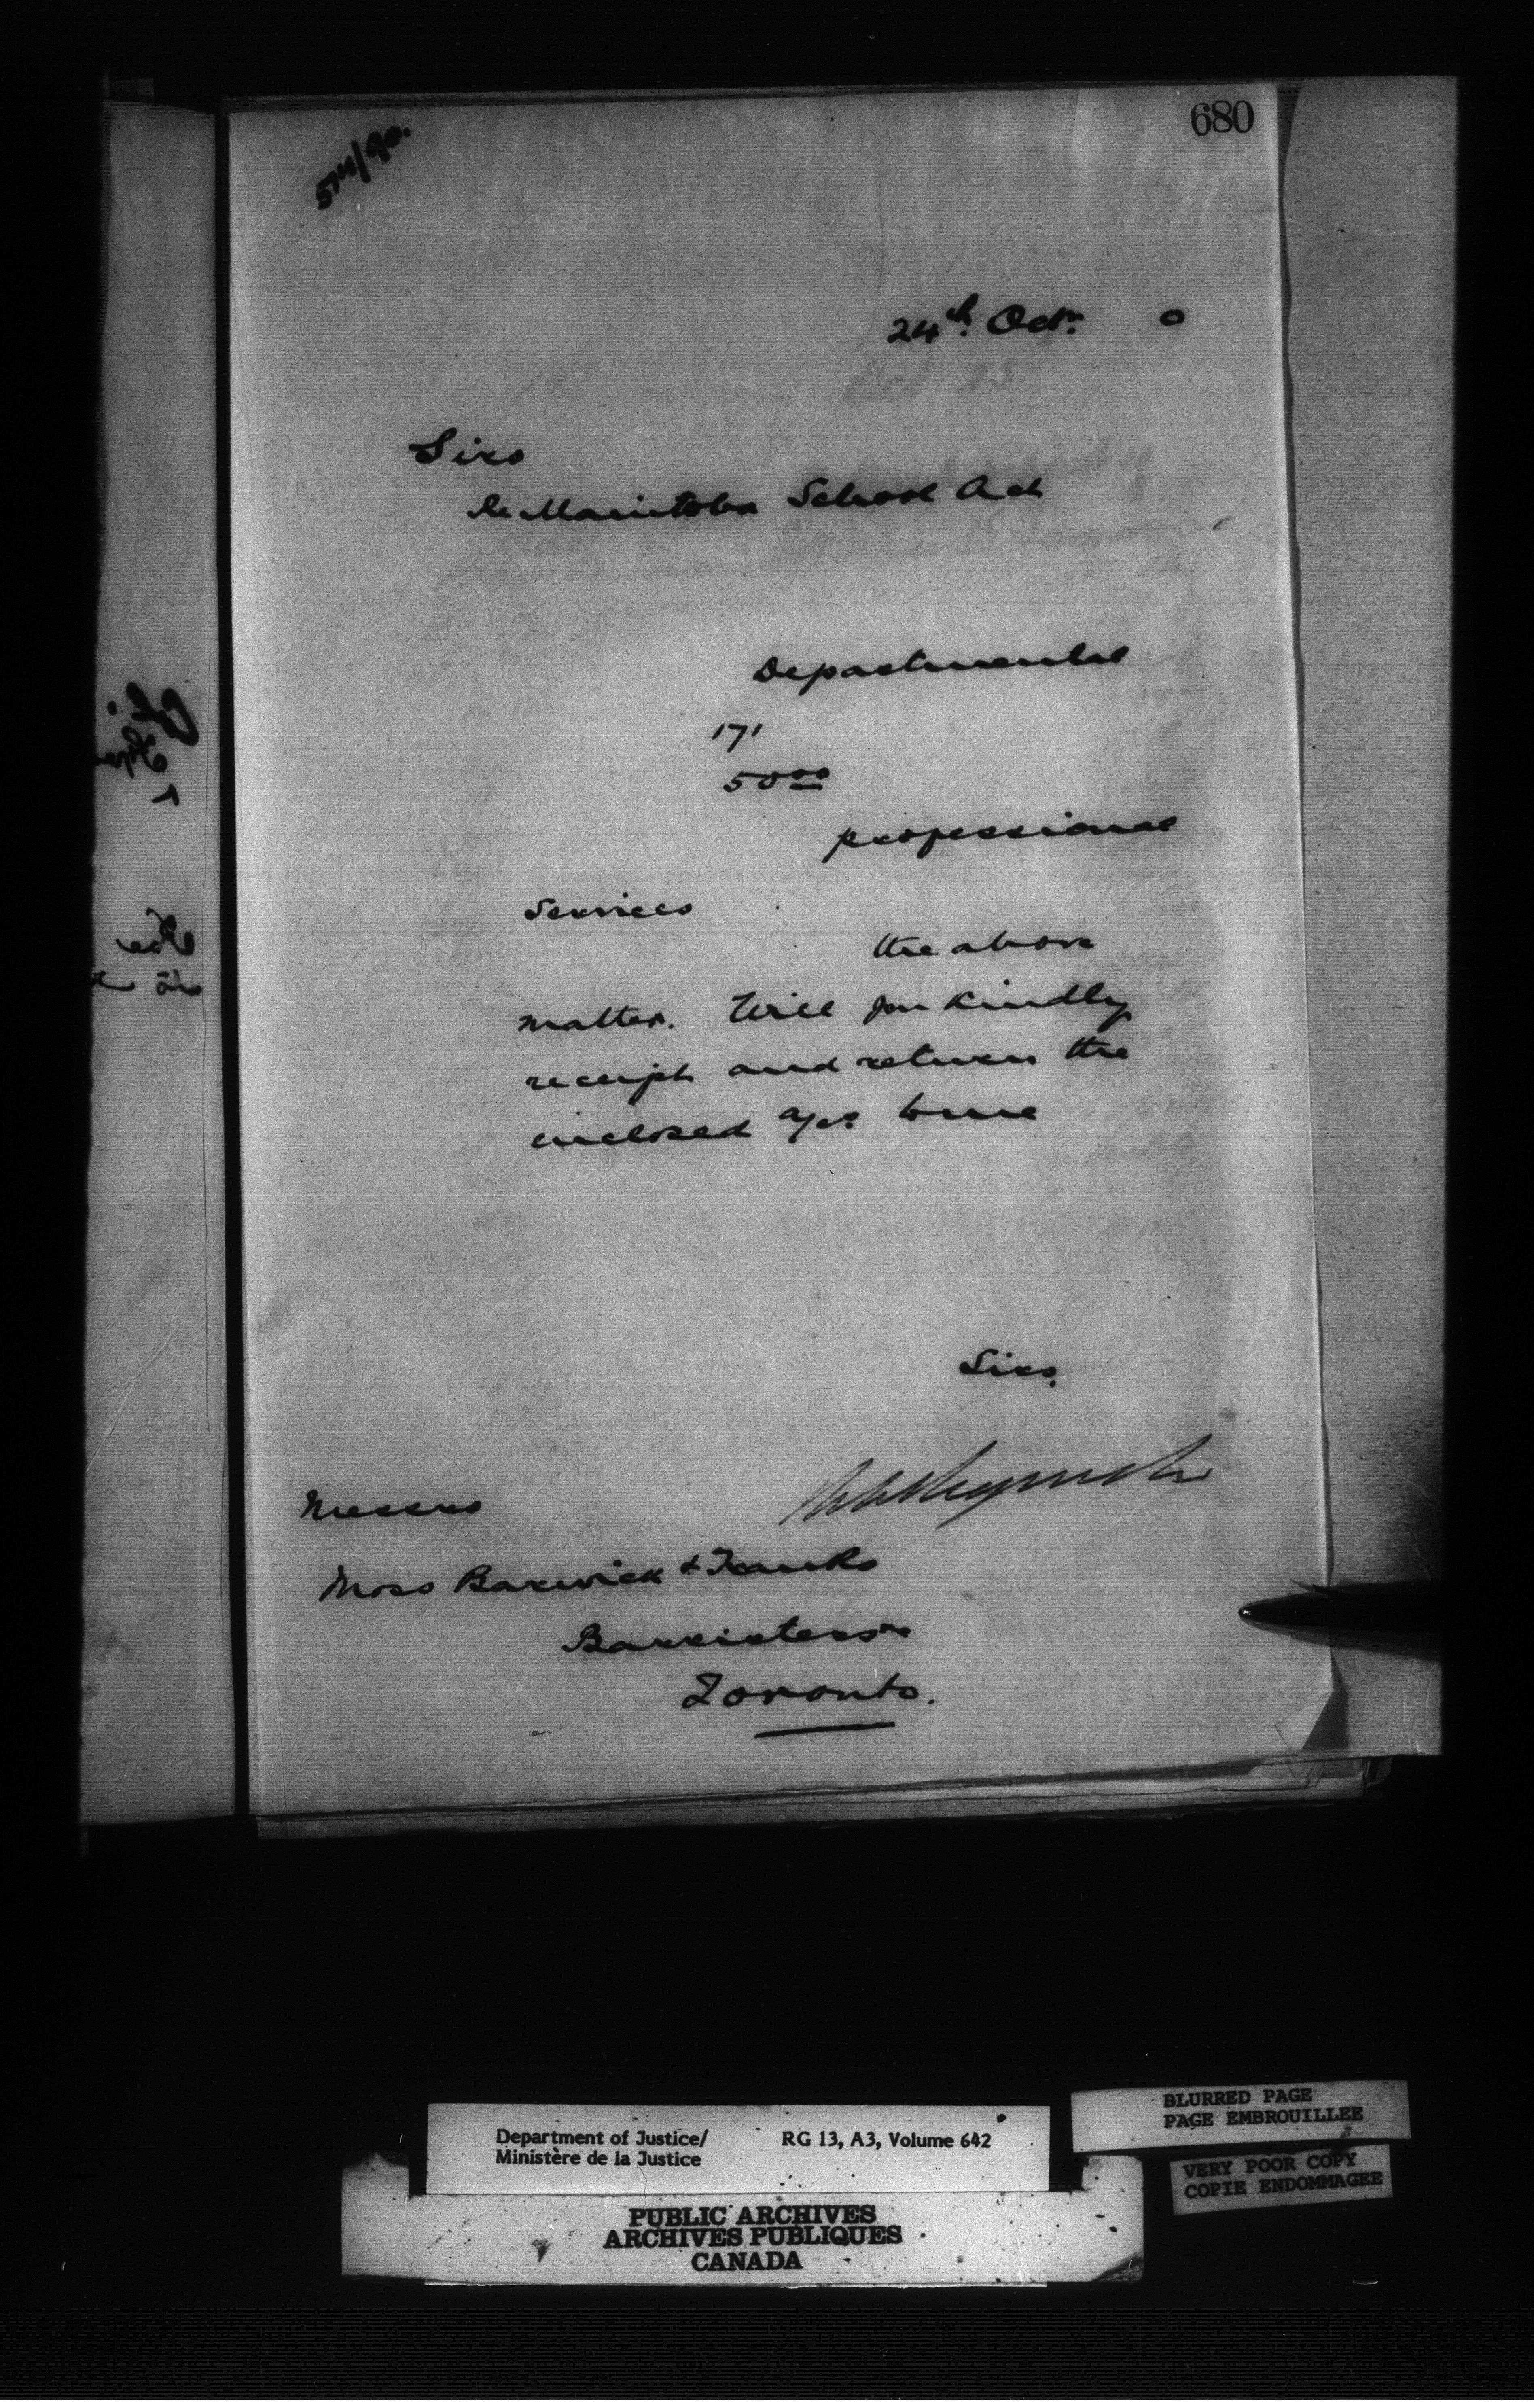 680
24th. Octr. 0
Sirs
Re Manitoba School Act
Departmental
171
50.00
professional
Services
the above
matter. Will you kindly
receipt and return the
enclosed a/cs. to me
Sirs.
Messrs
Moss Barwick & Franks
Barristers
Toronto.
Department of Justice/ RG 13, A3, Volume 642
Ministère de la Justice
PUBLIC ARCHIVES
ARCHIVES PUBLIQUES
CANADA
BLURRED PAGE
PAGE EMBROUILLEE
VERY POOR COPY
COPIE ENDOMMAGEE